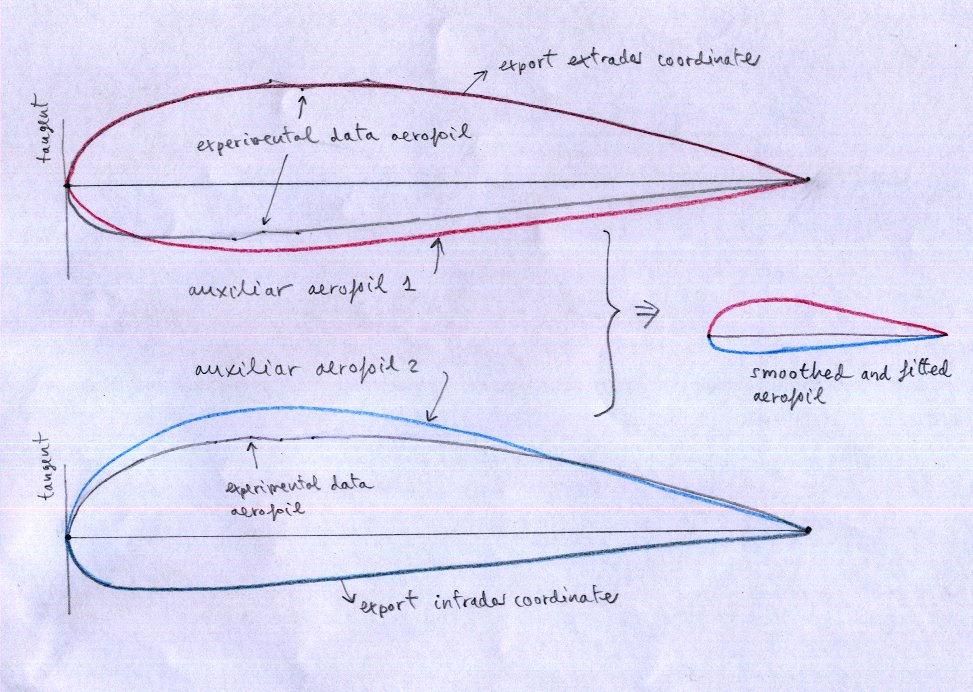 export extrados coordinates
tangent
experimental data aerofoil
auxiliar aerofoil 1
⇒
auxiliar aerofoil 2
smoothed and fitted
aerofoil
tangent
experimental data
aerofoil
export intrados coordinates